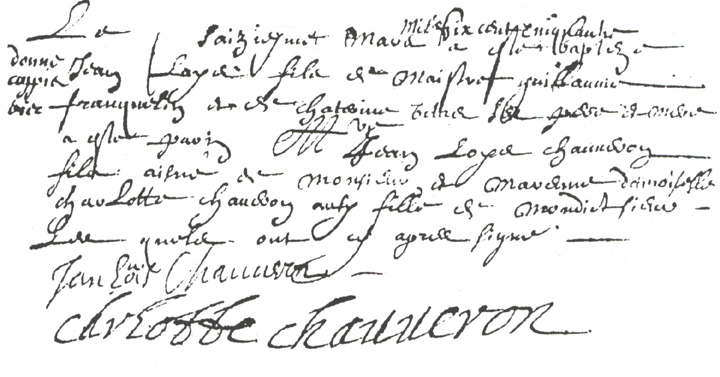 Le saiziesme Mars Mil six cent cinquante a este baptize
donne coppie Jean Loys fils de Maistre guillaume
franquelin et de chaterine ses pere et mere
a este parin Mre Jean Loys chauveron
fils aisne de Monsieur et Marenne damoiselle
charLotte chauveron aussy fille de Mondict sieur
Les quels ont cy apres signe
Jan Lois Chauveron
charlotte chauueron